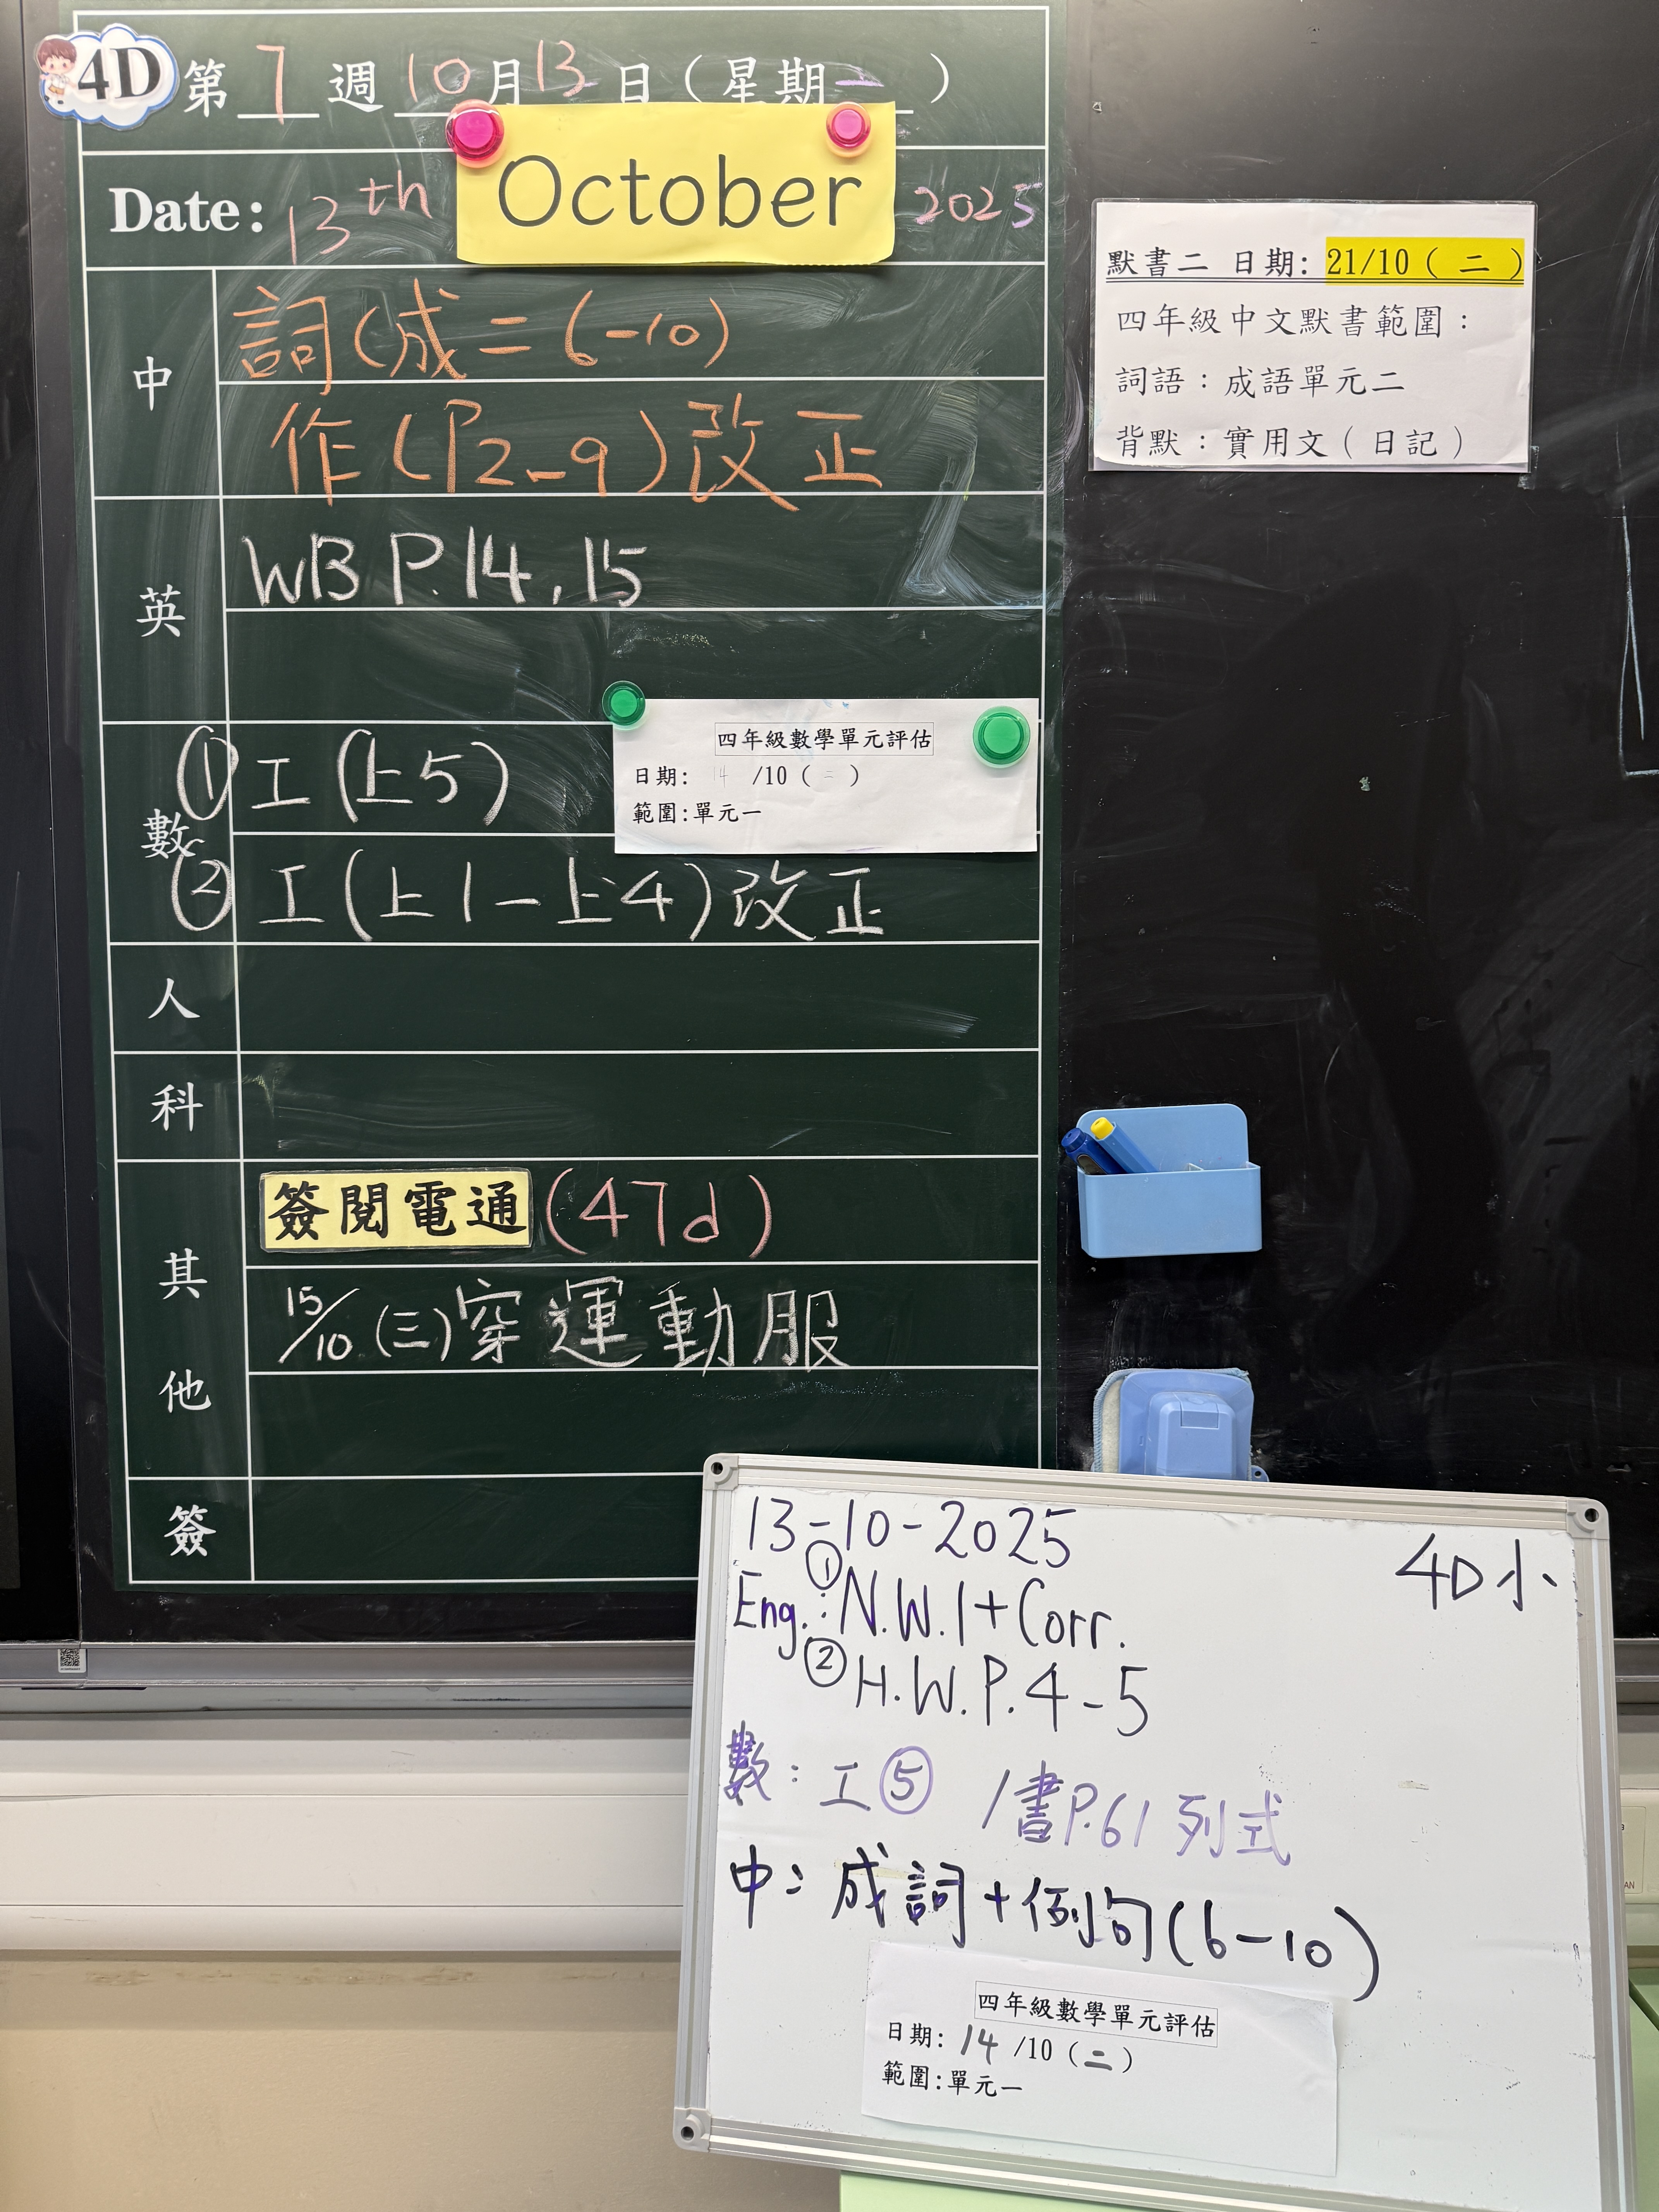 4D 第 7 週 10 月 13 日（星期一）
Date: 13th October 2025
中
詞(成二 6-10)
作(P2-9)改正
英
WB P.14, 15
數
① 工(上5)
② 工(上1-上4)改正
四年級數學單元評估
日期: 14 /10 (二)
範圍:單元一
人
科
其他
簽閱電通 (47d)
15/10 (三)穿運動服
簽
默書二 日期: 21/10 ( 二 )
四年級中文默書範圍：
詞語：成語單元二
背默：實用文（日記）
13-10-2025
4D小
Eng.: ① N.W.1+Corr.
② H.W.P.4-5
數: 工⑤ /書P.61 列式
中: 成詞+例句(6-10)
四年級數學單元評估
日期: 14 /10 (二)
範圍:單元一